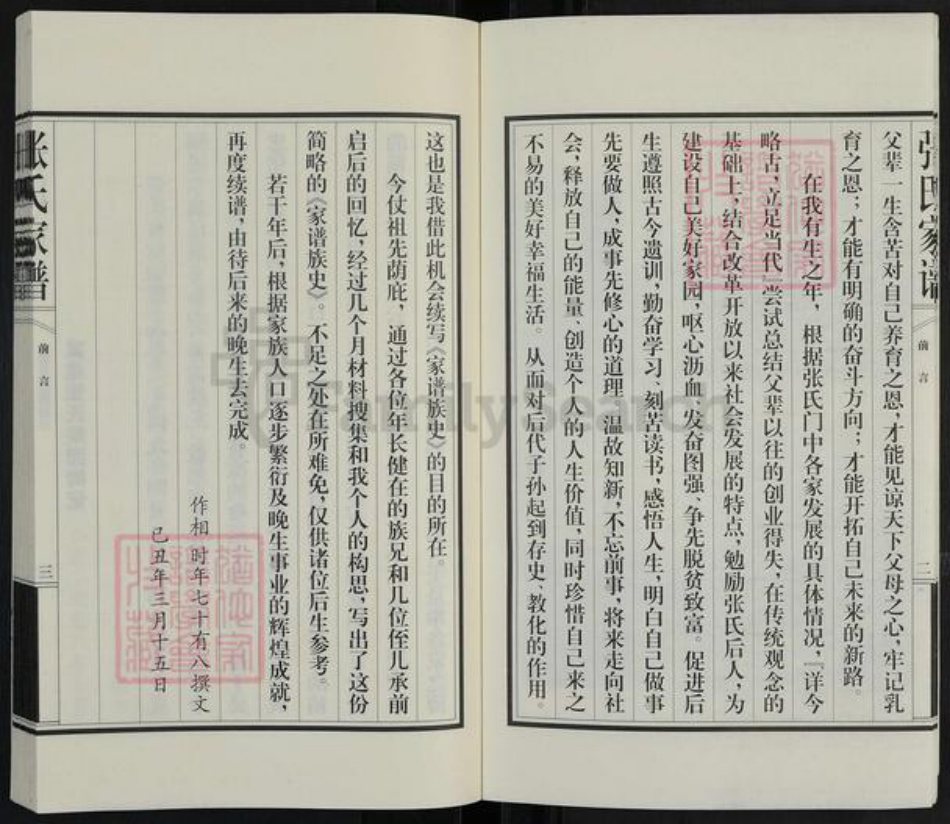 张氏家谱
前言
二
父辈一生含苦对自己养育之恩，才能见谅天下父母之心，牢记乳
育之恩；才能有明确的奋斗方向；才能开拓自己未来的新路。
在我有生之年，根据张氏门中各家发展的具体情况，『详今
略古，立足当代』尝试总结父辈以往的创业得失，在传统观念的
基础上，结合改革开放以来社会发展的特点，勉励张氏后人，为
建设自己美好家园，呕心沥血、发奋图强、争先脱贫致富。促进后
生遵照古今遗训，勤奋学习、刻苦读书，感悟人生，明白自己做事
先要做人，成事先修心的道理。温故知新，不忘前事，将来走向社
会，释放自己的能量、创造个人的人生价值，同时珍惜自己来之
不易的美好幸福生活。从而对后代子孙起到存史、教化的作用。
这也是我借此机会续写《家谱族史》的目的所在。
今仗祖先荫庇，通过各位年长健在的族兄和几位侄儿承前
启后的回忆，经过几个月材料搜集和我个人的构思，写出了这份
简略的《家谱族史》。不足之处在所难免，仅供诸位后生参考。
若干年后，根据家族人口逐步繁衍及晚生事业的辉煌成就，
再度续谱，由待后来的晚生去完成。
作相 时年七十有八撰文
己丑年三月十五日
张氏家谱
前言
三
FamilySearch